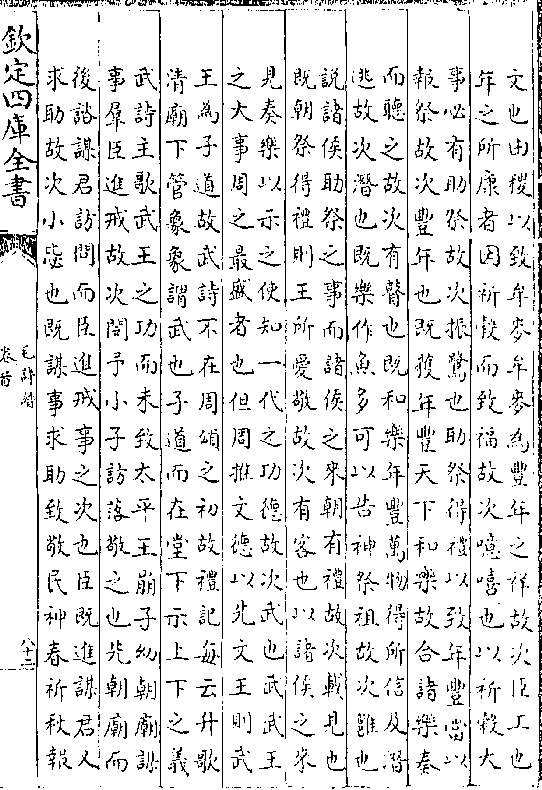 文也由稷以致牟麥牟麥為豐年之祥故次臣工也
年之所康者因祈穀而致福故次噫嘻也以祈穀大
事必有助祭故次振鷺也助祭得禮以致年豐當以
報祭故次豐年也既獲年豐天下和樂故合諸樂奏
而聽之故次有瞽也既和樂年豐萬物得所信及潛
逃故次潛也既樂作魚多可以告神祭祖故次雝也
說諸侯助祭之事而諸侯之來朝有禮故次載見也
既朝祭得禮則王所愛敬故次有客也以諸侯之來
見奏樂以示之使知一代之功德故次武也武武王
之大事周之最盛者也但周推文德以先文王則武
王為子道故武詩不在周頌之初故禮記每云升歌
清廟下管象象謂武也子道而在堂下示上下之義
武詩主歌武王之功而未致太平王崩子幼朝廟謀
事羣臣進戒故次閔予小子訪落敬之也先朝廟而
後諮謀君訪問而臣進戒事之次也臣既進謀君又
求助故次小毖也既謀事求助致敬民神春祈秋報
欽定四庫全書
毛詩譜
卷首
八十三